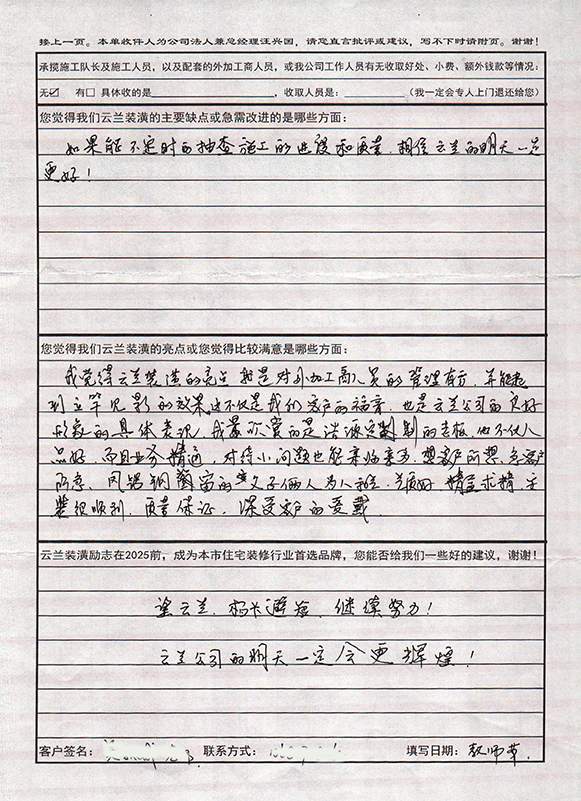 接上一页。本单收件人为公司法人兼总经理汪兴国，请您直言批评或建议，写不下时请附页。谢谢！
承揽施工队长及施工人员，以及配套的外加工商人员，或我公司工作人员有无收取好处、小费、额外钱款等情况：
无☑ 有□ 具体收的是____，收取人员是：____（我一定会专人上门退还给您）
您觉得我们云兰装潢的主要缺点或急需改进的是哪些方面：
如果能不定时的抽查施工的进度和质量，相信云兰的明天一定
更好！
您觉得我们云兰装潢的亮点或您觉得比较满意是哪些方面：
我觉得云兰装潢的亮点就是对外加工商人员的管理有方，并能起
到立竿见影的效果，这不仅是我们客户的福音，也是云兰公司的良好
形象的具体表现，我最欣赏的是 定制 的老板，他不仅人
品好，而且业务精通，对待小问题也能亲临亲为，想客户所想，急客户
所急，凤铝钢 窗的 父子俩人为人和 精益求精
装很顺利，质量保证，深受客户的爱戴
云兰装潢励志在2025前，成为本市住宅装修行业首选品牌，您能否给我们一些好的建议，谢谢！
望云兰，扬长避短，继续努力！
云兰公司的明天一定会更辉煌！
客户签名： 联系方式： 填写日期：教师节.